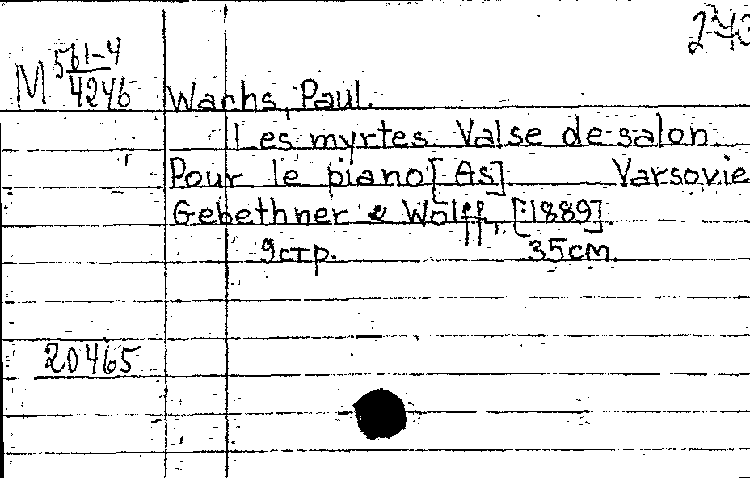 243
M 561-4
4246
Wachs, Paul.
Les myrtes. Valse de salon.
Pour le piano [As] Varsovie
Gebethner & Wolff, [1889].
9стр. 35см.
20465